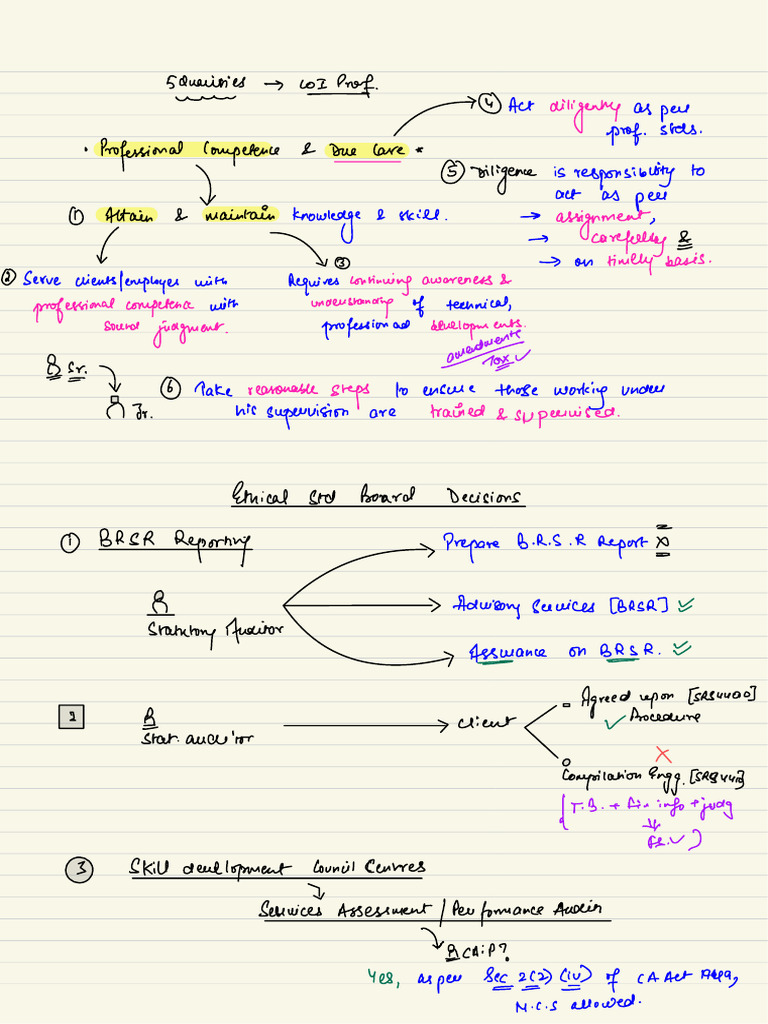 5 Qualities → COI Prof.
④ Act diligently as per
prof. stds.
• Professional Competence & Due Care *
⑤ Diligence is responsibility to
act as per
→ assignment,
→ carefully &
→ on timely basis.
① Attain & maintain knowledge & skill.
② Serve clients/employer with
professional competence with
sound judgment.
③
Requires continuing awareness &
understanding of technical,
professional developments.
amendments
Tax ✓
Sr.
Jr.
⑥ Take reasonable steps to ensure those working under
his supervision are trained & supervised.
Ethical Std Board Decisions
① BRSR Reporting
Prepare B.R.S.R Report ×
Statutory Auditor
Advisory Services [BRSR] ✓
Assurance on BRSR. ✓
2
Stat. auditor
→ Client
Agreed upon [SRS4400]
✓ Procedure
×
Compilation Engg. [SRS4410]
{ T.B. + Fin info + judg
⇒
F.S. ✓ }
③ Skill development Council Centres
Services Assessment / Performance Audit
CAiP?
Yes, as per Sec 2(2) (iv) of CA Act,
M.C.S allowed.